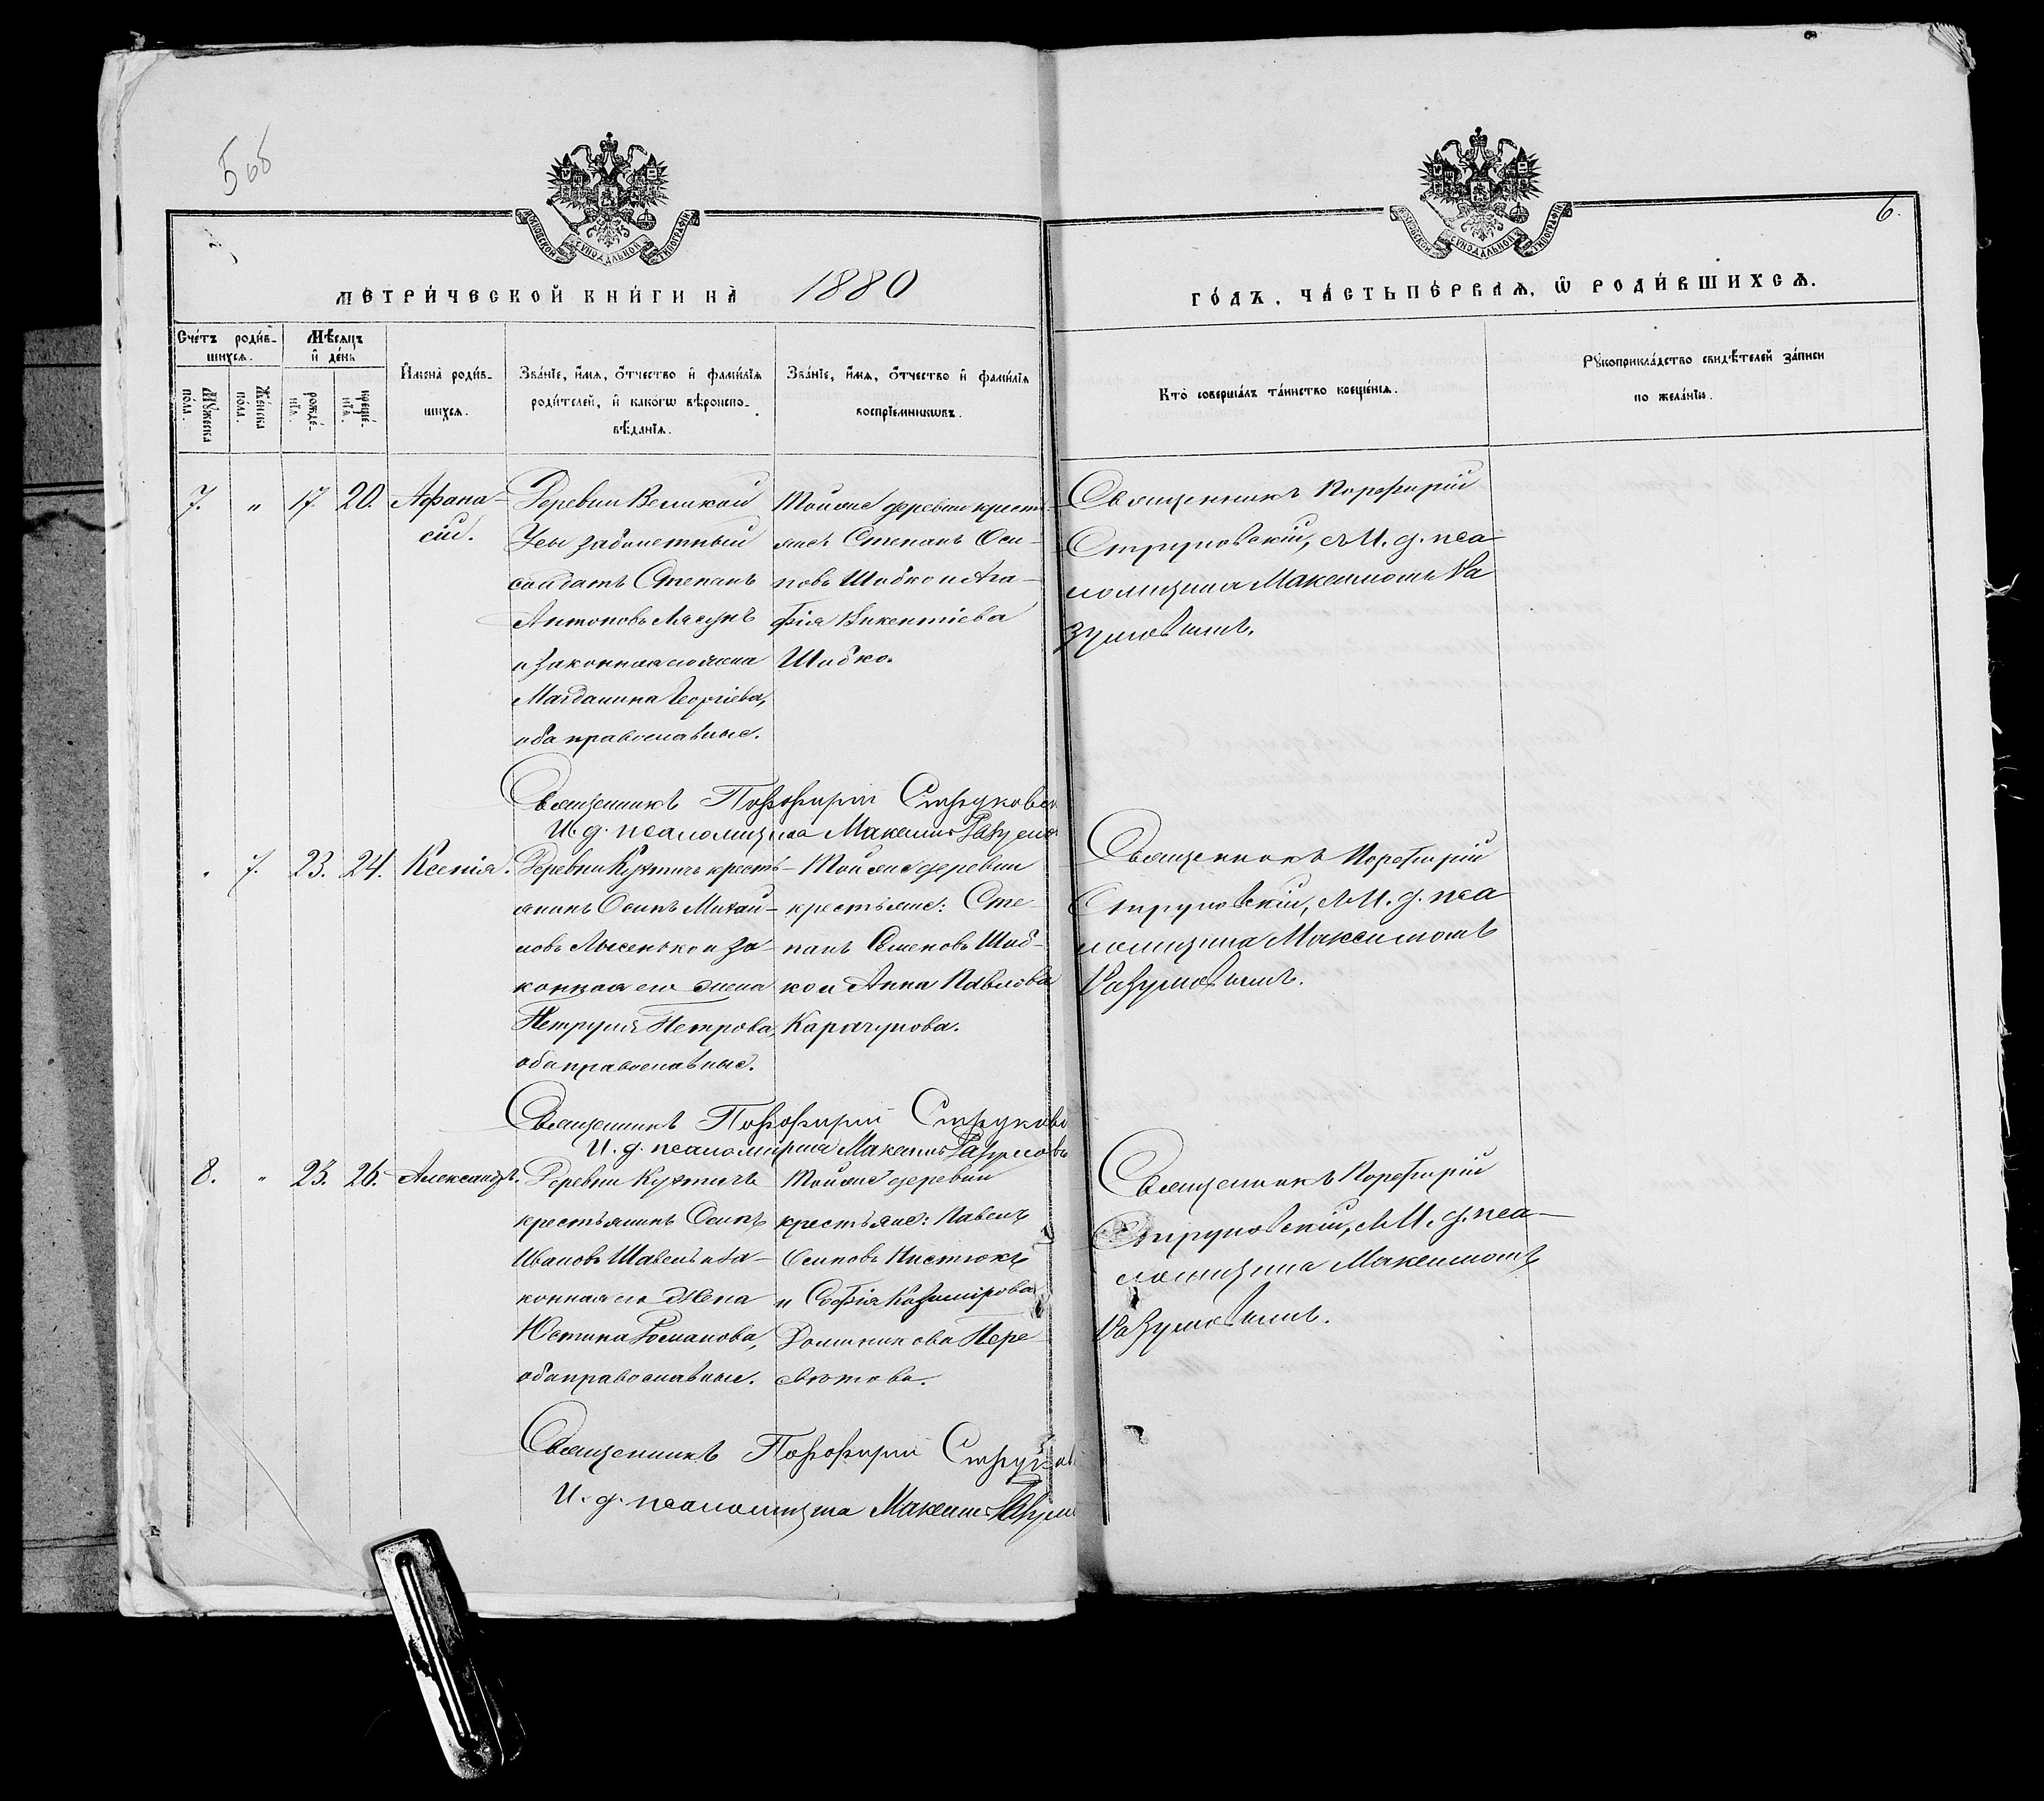 5 об
6.
МОСКОВСКОЙ СѴНОДАЛЬНОЙ ТИПОГРАФІИ
МОСКОВСКОЙ СѴНОДАЛЬНОЙ ТИПОГРАФІИ
МЕТРИ́ЧЕСКОЙ КНИ́ГИ НА̀ 1880
ГО́ДЪ, ЧА́СТЬ ПЕ́РВАѦ, Ѡ РОДИ́ВШИХСѦ.
Сче́тъ роди́в-
шихсѧ.
Мꙋжеска по́ла.
Же́нска по́ла.
Мѣ́сѧцъ
и҆ де́нь
рожде́-
нїѧ.
креще́-
нїѧ.
И҆мена̀ роди́в-
шихсѧ.
Зва́нїе, и҆́мѧ, ѻ҆́тчество и҆ фами́лїѧ
роди́телей, и҆ како́гѡ вѣроиспо-
вѣ́данїѧ.
Зва́нїе, и҆́мѧ, ѻ҆́тчество и҆ фами́лїѧ
воспрїе́мникѡвъ.
Кто̀ соверша́лъ та́инство креще́нїѧ.
Рꙋкоприкла́дство свидѣ́телей за́писи
по жела́нїю.
7. " 17. 20. Афана-
сій.
Деревни Великой
Усы забилетный
солдатъ Степанъ
Антоновъ Лясунъ
и законная его жена
Магдалина Георгіева,
оба православные.
Той же деревни кресть-
яне: Степанъ Оси-
повъ Шабко и Ага-
фія Викентіева
Шабко.
Священникъ Порфирій
Струковскій, съ И. д. пса-
ломщика Максимомъ Ра
зумовичемъ.
Священникъ Порфирій Струковс
И. д. псаломщика Максимъ Разумо
" 7. 23. 24. Ксенія.
Деревни Кухтичъ кресть-
янинъ Осипъ Михай-
ловъ Лысенько и за-
конная его жена
Петруня Петрова,
оба православные.
Той же деревни
крестьяне: Сте-
панъ Семеновъ Шаб-
ко и Анна Павлова
Карачунова.
Священникъ Порфирій
Струковскій, съ И. д. пса
ломщика Максимомъ
Разумовичемъ.
Священникъ Порфирій Струково
И. д. псаломщика Максимъ Разумови
8. " 23. 26. Александръ.
Деревни Кухтичъ
крестьянинъ Осипъ
Ивановъ Шавель и за-
конная его жена
Юстина Романова,
оба православные.
Той же деревни
крестьяне: Павелъ
Осиповъ Пистюкъ
и Софія Казимірова
Священникъ Порфирій
Струковскій, съ И. д. пса-
ломщика Максимомъ
Разумовичемъ.
Священникъ Порфирій Струков
И. д. псаломщика Максимъ Разум